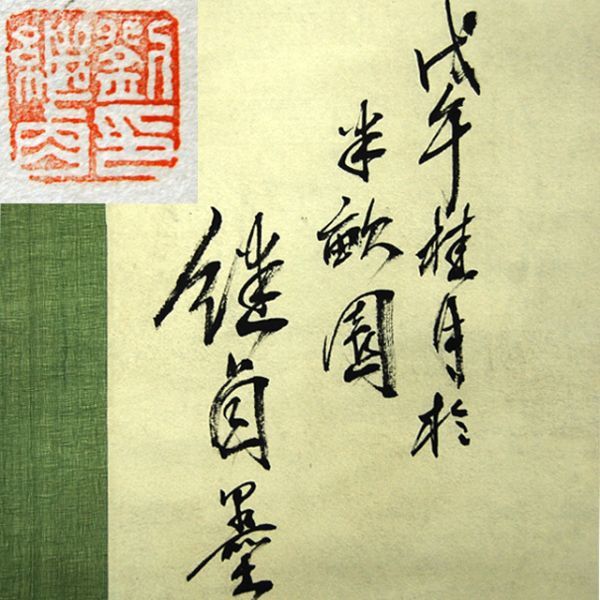 戊年桂月於
半畝園
继卣墨
劉印
繼卣